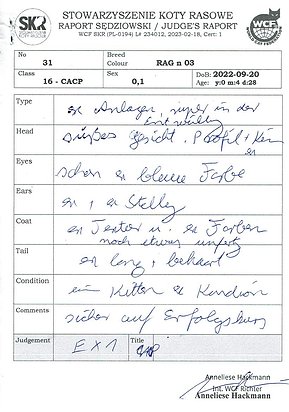 SKR
STOWARZYSZENIE KOTY RASOWE
RAPORT SĘDZIOWSKI / JUDGE'S RAPORT
WCF SKR (PL-0194) L# 234012, 2023-02-18, Cert: 1
WCF
No
31
Breed
Colour
RAG n 03
Class
16 - CACP
Sex
0,1
DoB: 2022-09-20
Age: y:0 m:4 d:28
Type
ex Anlagen, super in der
Entwicklg
Head
süßes Gesicht, Profil + Kinn
ex
Eyes
schon ex blaue Farbe
Ears
ex, ex Stellg
Coat
ex Textur u. ex Farben
noch etwas unfertig
Tail
ex lang + behaart
Condition
ein Kitten ex Kondition
Comments
sicher auf Erfolgskurs
Judgement
EX 1
Title
Anneliese Hackmann
Int. WCF Richter
Anneliese Hackmann